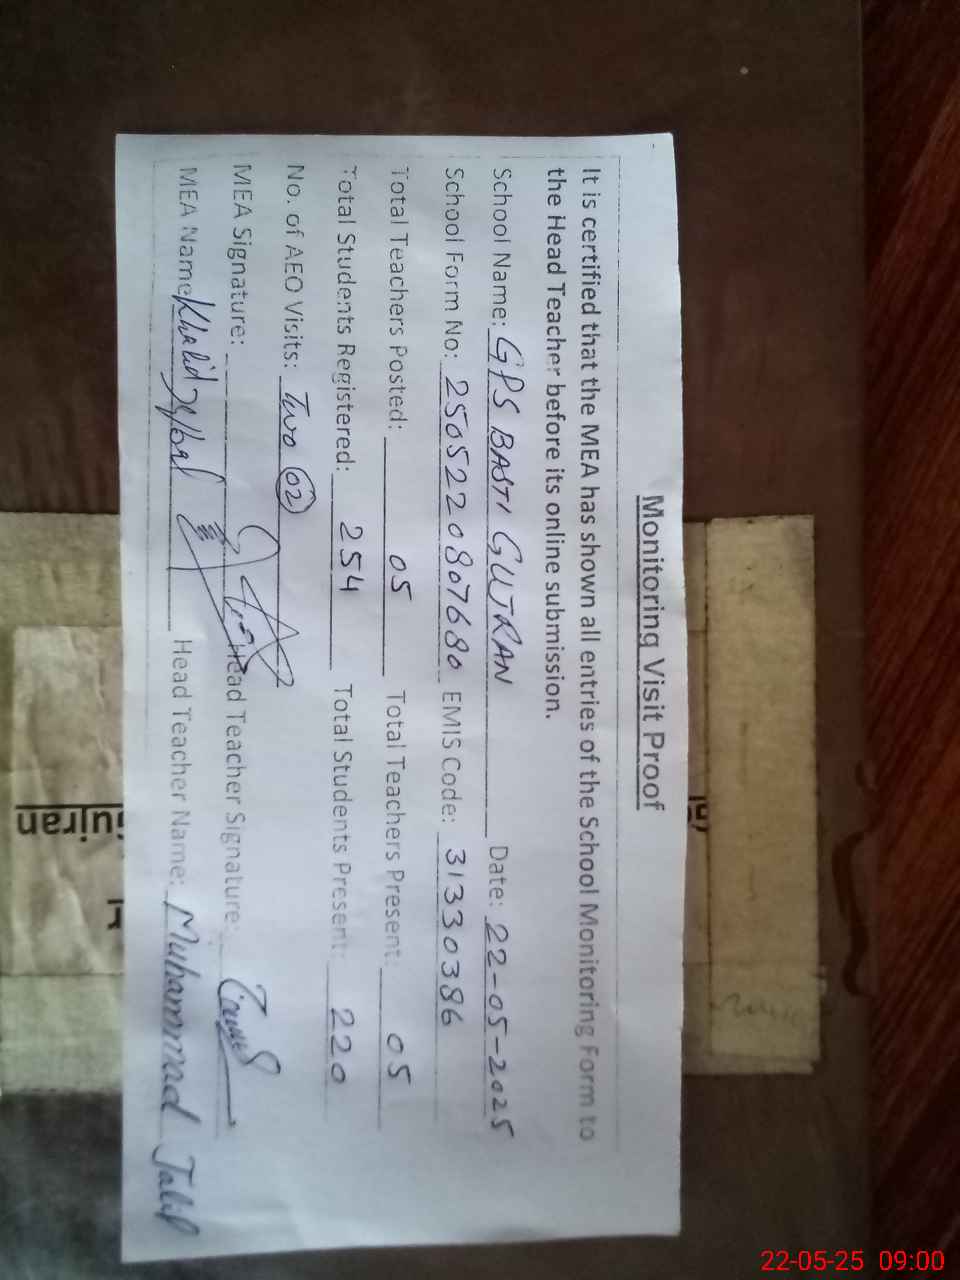 Monitoring Visit Proof
It is certified that the MEA has shown all entries of the School Monitoring Form to
the Head Teacher before its online submission.
School Name: GPS BASTI GUJRAN Date: 22-05-2025
School Form No: 2505220807680 EMIS Code: 31330386
Total Teachers Posted: 05 Total Teachers Present: 05
Total Students Registered: 254 Total Students Present: 220
No. of AEO Visits: Two 02
MEA Signature: Head Teacher Signature:
MEA Name Khalid Iqbal Head Teacher Name: Muhammad Jalil
Gujran
22-05-25 09:00